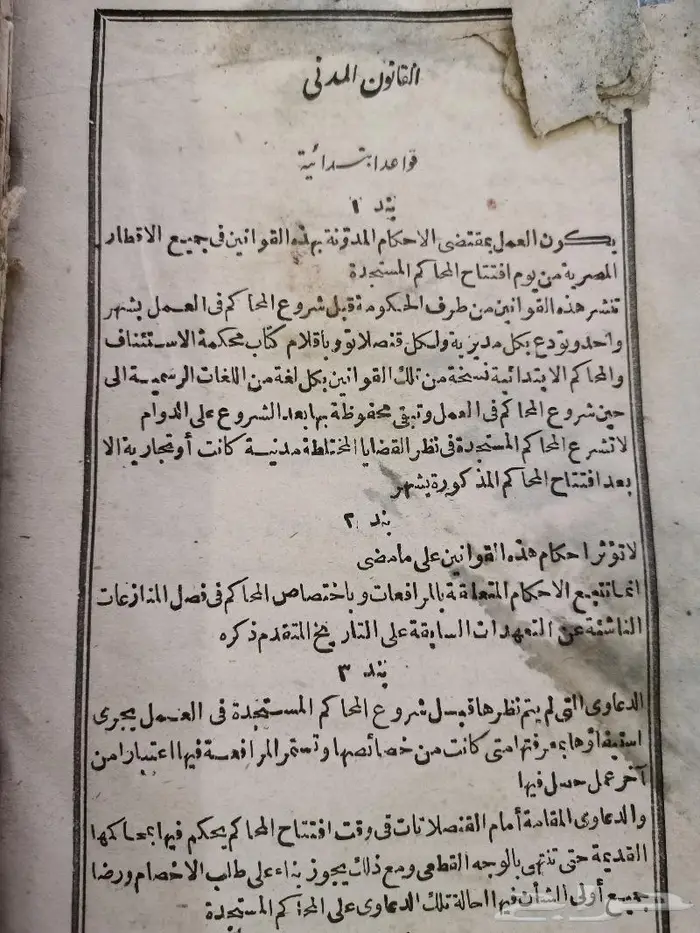 القانون المدنى
قواعد ابتدائية
بند ١
يكون العمل بمقتضى الاحكام المدونة بهذه القوانين فى جميع الاقطار
المصرية من يوم افتتاح المحاكم المستجدة
تنشر هذه القوانين من طرف الحكومة قبل شروع المحاكم فى العمل بشهر
واحد وتودع بكل مديرية ولكل قنصلاتو وباقلام كتاب محكمة الاستئناف
والمحاكم الابتدائية نسخة من تلك القوانين بكل لغة من اللغات الرسمية الى
حين شروع المحاكم فى العمل وتبقى محفوظة بها بعد الشروع على الدوام
لا تشرع المحاكم المستجدة فى نظر القضايا المختلطة مدنية كانت أو تجارية الا
بعد افتتاح المحاكم المذكورة بشهر
بند ٢
لا تؤثر احكام هذه القوانين على ما مضى
انما تتبع الاحكام المتعلقة بالمرافعات وباختصاص المحاكم فى فصل المنازعات
الناشئة عن التعهدات السابقة على التاريخ المتقدم ذكره
بند ٣
الدعاوى التى لم يتم نظرها قبل شروع المحاكم المستجدة فى العمل يجرى
استيفاؤها بمعرفتها متى كانت من خصائصها وتستمر المرافعة فيها اعتبارا من
آخر عمل حصل فيها
والدعاوى المقامة أمام القنصلاتات فى وقت افتتاح المحاكم يحكم فيها بمحاكمها
القديمة حتى تنتهى بالوجه القطعى ومع ذلك يجوز بناء على طلب الاخصام ورضا
جميع أولى الشأن فيها احالة تلك الدعاوى على المحاكم المستجدة
حراج